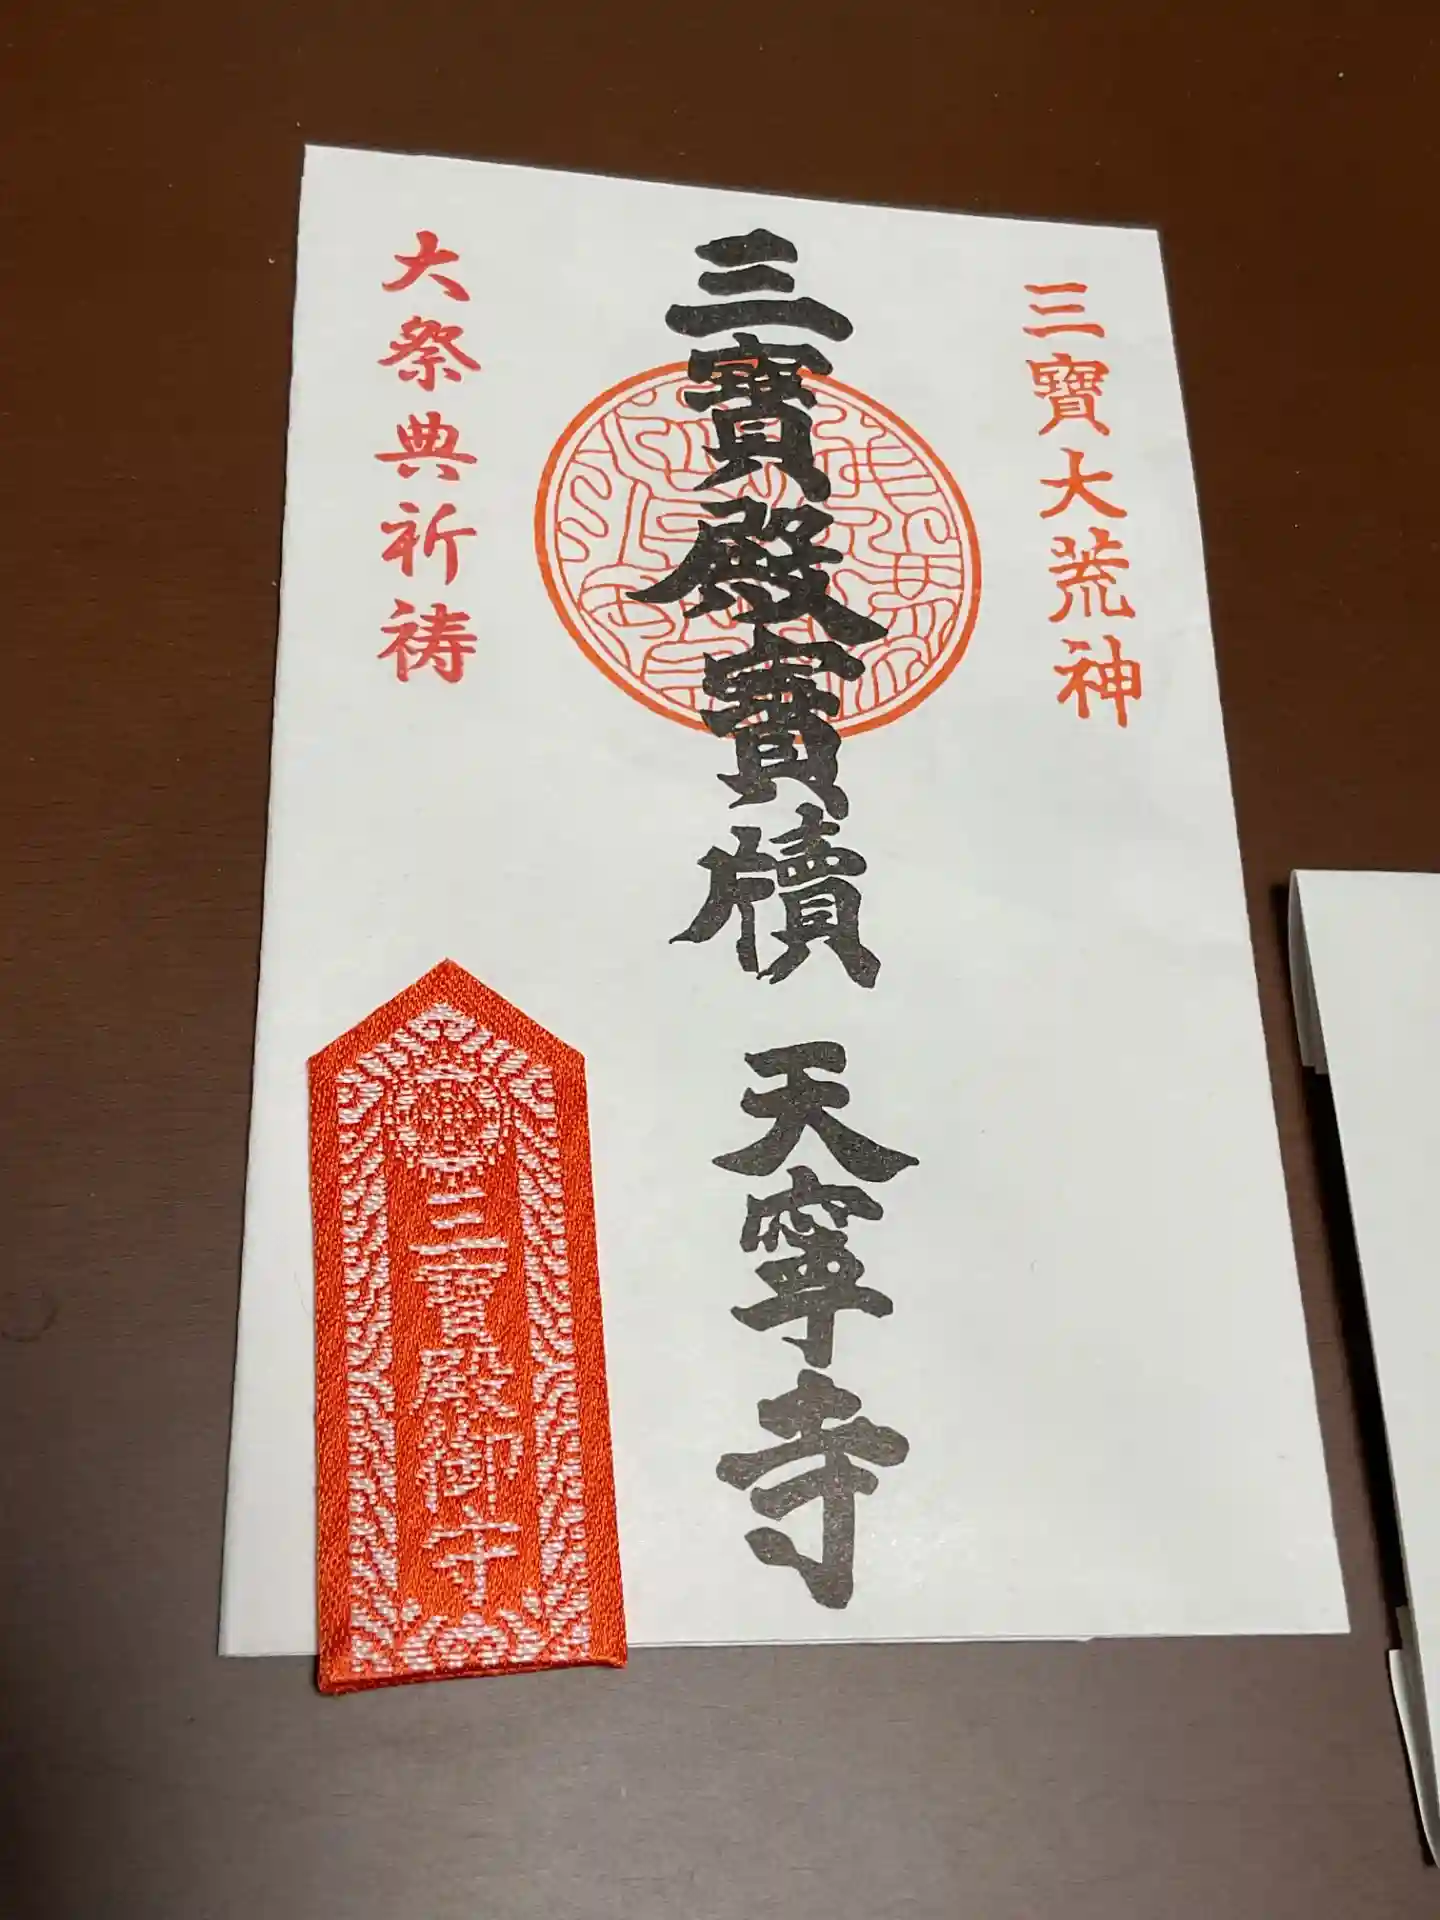 三寶大荒神
三寶殿寳牘 天寧寺
大祭典祈祷
三寳殿御守